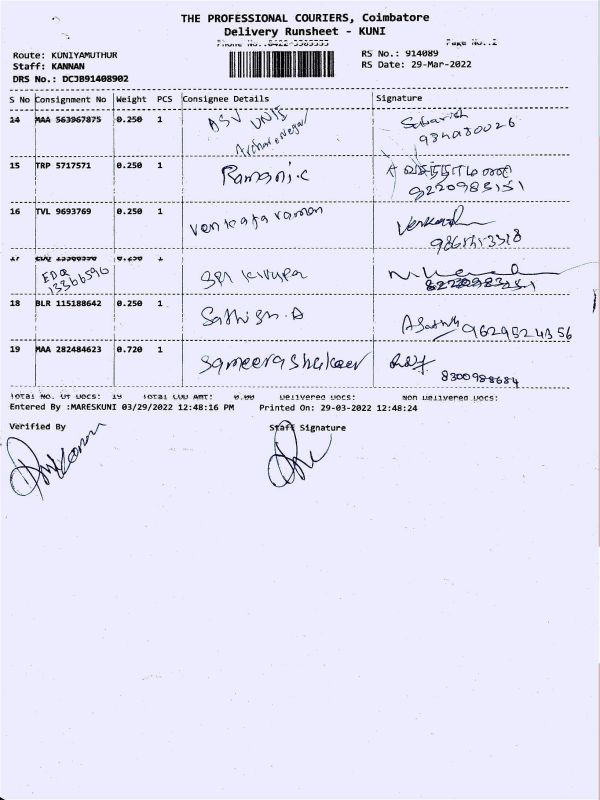 THE PROFESSIONAL COURIERS, Coimbatore
Delivery Runsheet - KUNI
Page No.:2
Route: KUNIYAMUTHUR
RS No.: 914089
Staff: KANNAN
RS Date: 29-Mar-2022
DRS No.: DCJB91408902
S No Consignment No Weight PCS Consignee Details Signature
14 MAA 563967875 0.250 1
15 TRP 5717571 0.250 1 Ramani.c
8220983151
16 TVL 9693769 0.250 1 Venkataraman
17 0.250 1
EDQ
13366590
Sri Kirupa
18 BLR 115188642 0.250 1 Sathish.A
9629524356
19 MAA 282484623 0.720 1 Sameera Shakeer
8300988684
Total No. Of Docs: 19 Total COD Amt: 0.00 Delivered Docs: Non Delivered Docs:
Entered By :MARESKUNI 03/29/2022 12:48:16 PM Printed On: 29-03-2022 12:48:24
Verified By Staff Signature